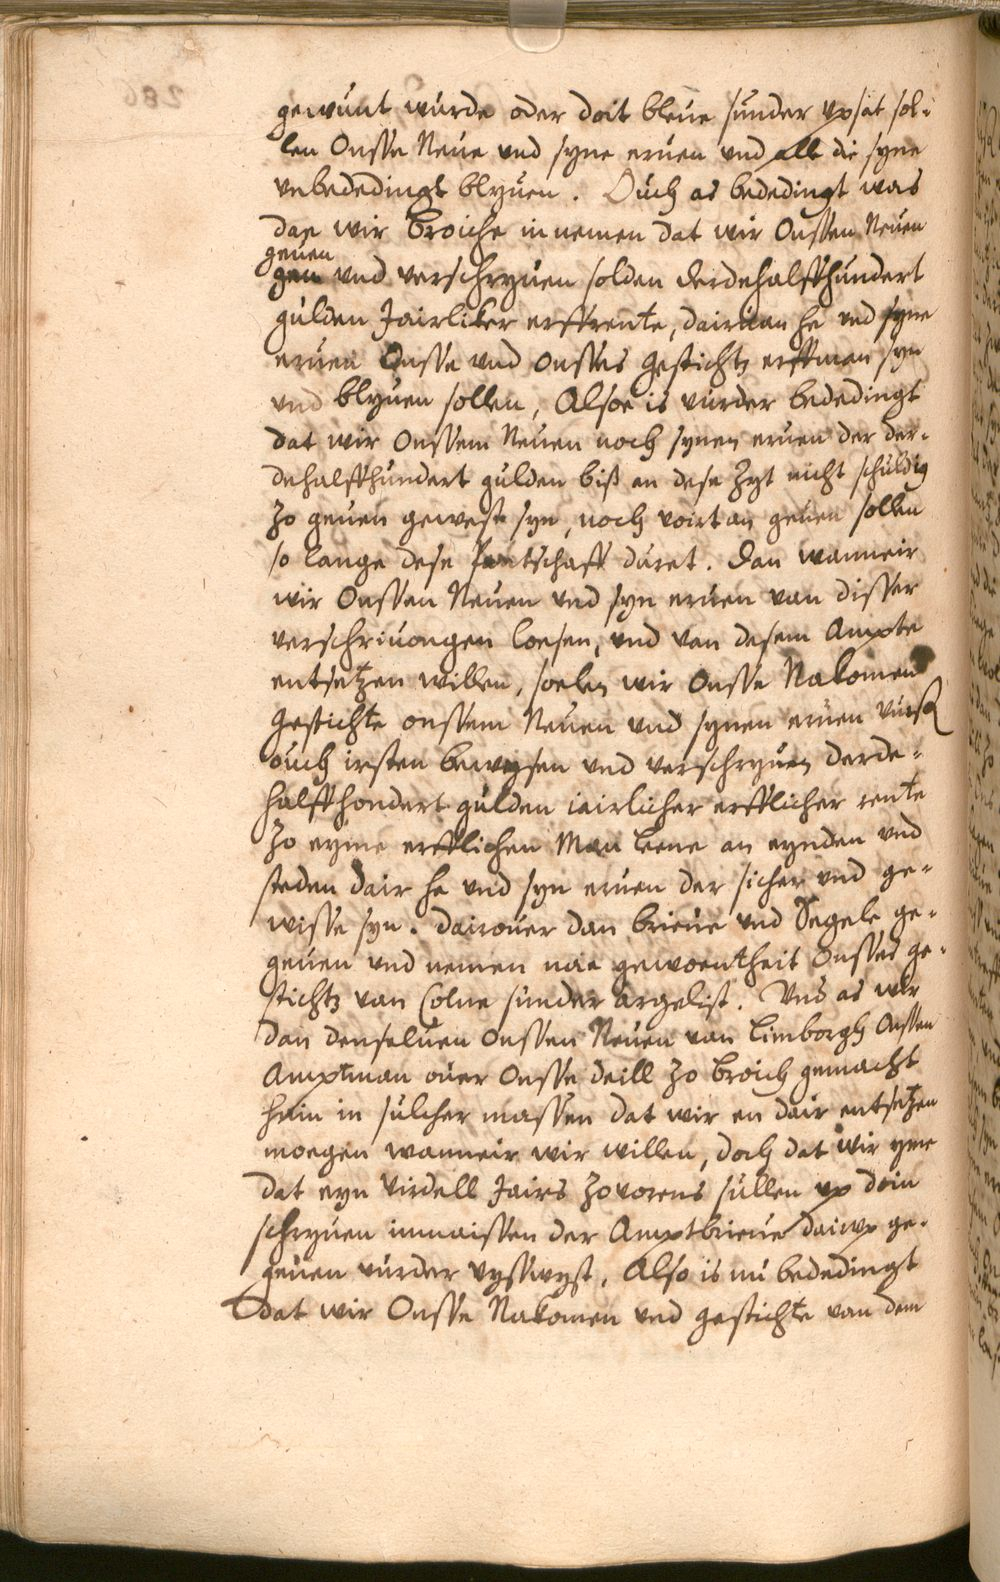 gewunt wurde oder doit bleue sunder vpsat sol-
len Onsse Neue vnd syne eruen vnd alle die syne
vnbededingt blyuen. Ouch as bededingt was
dae wir Broiche innemen dat wir Onssen Neuen
geuen
gen vnd verschryuen solden derdehalffhundert
gulden Jairliker erffrente, dairuan he vnd syne
eruen Onsse vnd Onsses Gestichtz erffman syn
vnd blyuen sollen, Alsoe is vurder bededingt
dat wir Onssem Neuen noch synen eruen der der-
dehalffhundert gulden biß an dese Zyt nicht schuldig
Zo geuen gewest syn, noch vort an geuen sollen
so lange dese Pantschaff duret. Dan wanneir
wir Onssen Neuen vnd syn eruen van disser
verschriuongen loesen, vnd van desem Ampte
entsetzen willen, soelen wir Onsse Nakomen
Gestichte onssem Neuen vnd synen eruen vurß
ouch irsten bewysen vnd verschryuen derde-
halffhondert gulden iairlicher erfflicher rente
Zo eyme erfflichen Man leene an eynden vnd
steden dair he vnd syn eruen der sicher vnd ge-
wisse syn. Dairouer dan brieue vnd Segele ge-
geuen vnd nemen nae gewoentheit Onsses ge-
stichtz van Colne sunder argelist. Vnd as wir
dan denseluen Onssen Neuen van Limborgh Onssen
Amptman ouer Onsse deill Zo Broich gemacht
hain in sulcher massen dat wir en dair entsetzen
moegen wanneir wir willen, doch dat wir yme
dat eyn virdell Jairs Zovorens sullen vp doin
schryuen inmaissen der Amptbrieue dairvp ge-
geuen vurder vysswyst, Also is nu bededingt
dat wir Onsse Nakomen vnd gestichte van dem